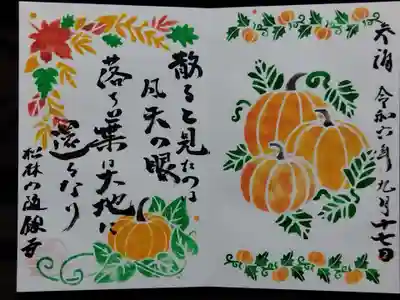 奉拝 令和六年九月十七日
散ると見たのは
凡夫の眼
落ち葉は大地に
還るなり
松林山随縁寺